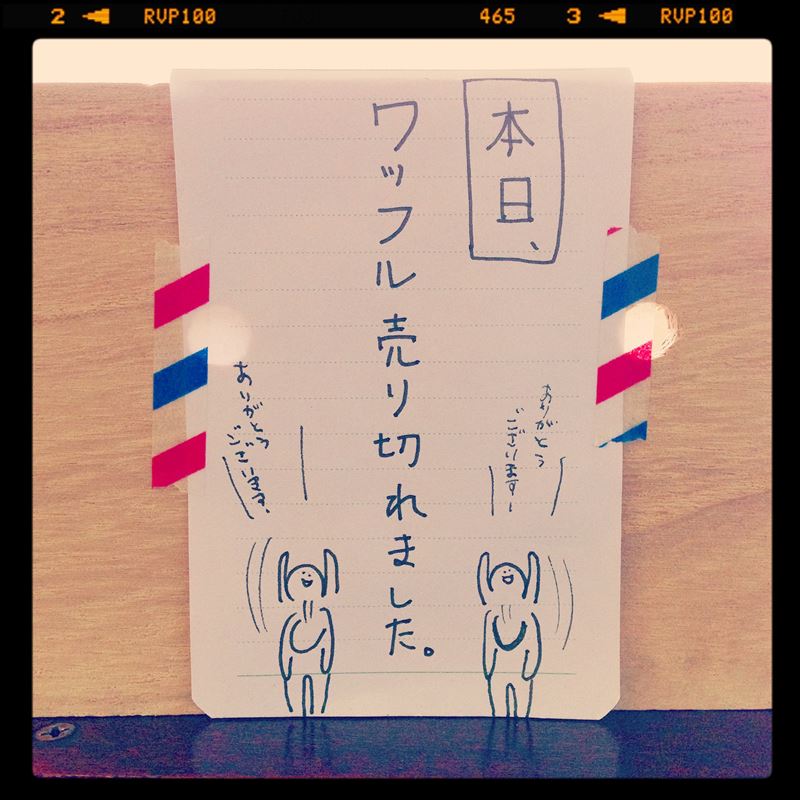 2 RVP100 465 3 RVP100
本日、
ワッフル売り切れました。
ありがとう
ございます！
ありがとう
ございます、